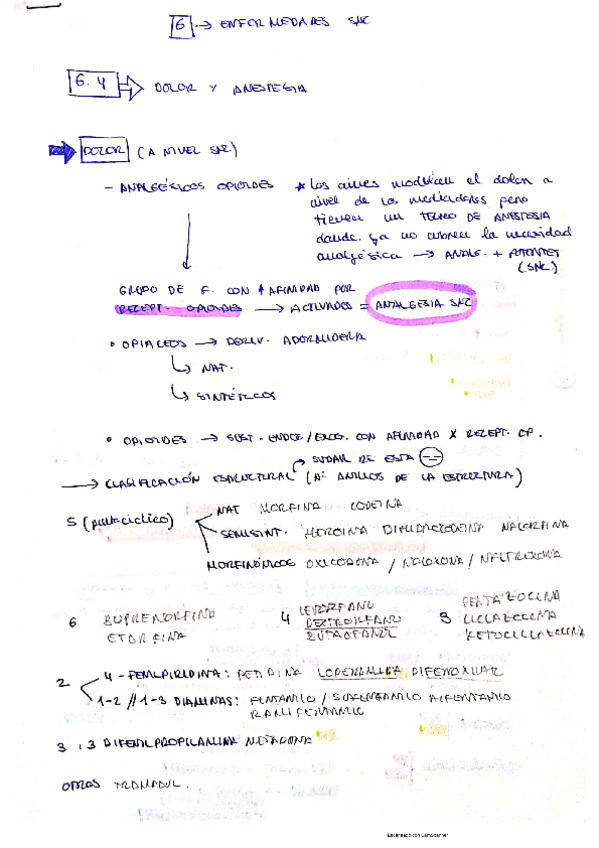 6 → ENFERMEDADES SNC
6.4 ⇒ DOLOR Y ANESTESIA
DOLOR (A NIVEL SNC)
- ANALGÉSICOS OPIOIDES
* Los aines modulan el dolor a
nivel de los mediadores pero
tienen un TECHO DE ANESTESIA
donde ya no cubren la necesidad
analgésica → ANALG. + POTENTES
(SNC)
GRUPO DE F. CON ↑ AFINIDAD POR
RECEPT. OPIOIDES → ACTIVADOS = ANALGESIA SNC
• OPIACEOS → DERIV. ADORMIDERA
↳ NAT.
↳ SINTÉTICOS
• OPIOIDES → SUST. ENDOG/EXOG. CON AFINIDAD X RECEPT. OP.
SUDAR DE ESTA
→ CLASIFICACIÓN ESTRUCTURAL (Nº ANILLOS DE LA ESTRUCTURA)
5 (pentaciclico)
NAT MORFINA CODEINA
SEMISINT. HEROINA DIHIDROCODEINA NALORFINA
MORFINÓNICOS OXICODONA / NALOXONA / NALTREXONA
6 BUPRENORFINA
ETORFINA
4 LEVORFANO
DEXTRORFANO
BUTORFANOL
3 PENTAZOCINA
CICLAZOCINA
KETOCICLAZOCINA
2
4-FENILPIPIRIDINA: PETIDINA LOPERAMIDA DIFENOXILAT
1-2 // 1-3 DIAMINAS: FENTANILO / SUFENTANILO ALFENTANILO
REMIFENTANILO
3,3 DIFENILPROPILAMINA METADONA
OTROS TRAMADOL.
Escaneado con CamScanner